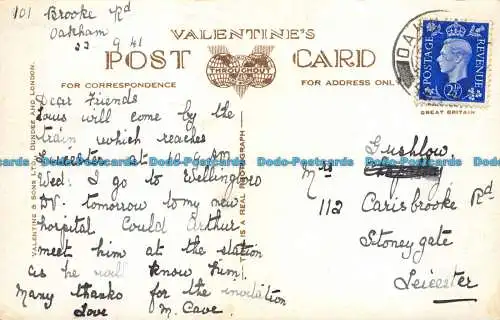 101 Brooke Rd
Oakham
23 9 41
VALENTINE'S
POST CARD
FOR CORRESPONDENCE
FOR ADDRESS ONLY
POSTAGE
REVENUE
2½D
GREAT BRITAIN
VALENTINE & SONS LTD. DUNDEE AND LONDON.
IS A REAL PHOTOGRAPH
Dear Friends
will come by the
train which reaches
Leicester at 10 AM
Wed: I go to Wellingboro
D.V. tomorrow to my new
hospital Could Arthur
meet him at the station
as he will know him.
Many thanks for the invitation
Love M. Cave.
Mrs Lushlow
112 Carisbrooke Rd
Stoneygate
Leicester
Docards-Postcards